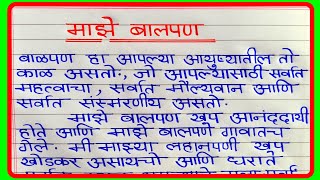 माझे बालपण
बाळपण हा आपल्या आयुष्यातील तो
काळ असतो., जो आपल्यासाठी सर्वात
महत्वाचा, सर्वात मौल्यवान आणि
सर्वात संस्मरणीय असतो.
माझे बालपण खुप आनंददायी
होते आणि माझे बालपण गावातच
गेले. मी माझ्या लहानपणी खुप
खोडकर असायचो आणि घराते